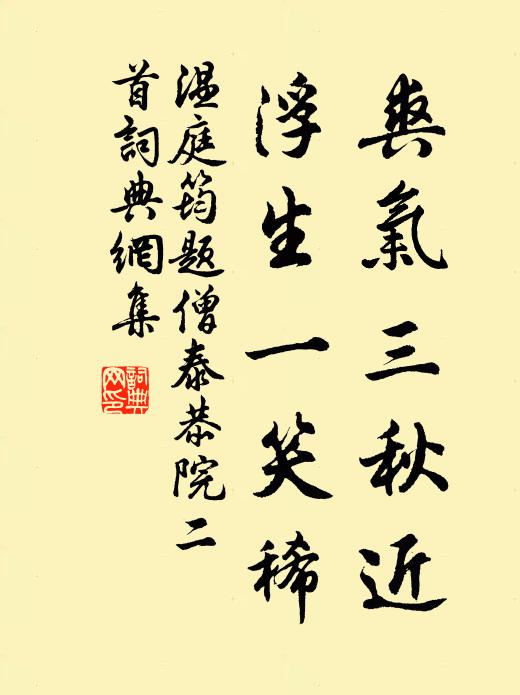 爽氣三秋近
浮生一笑稀
溫庭筠題僧泰恭院二
首詞典網集
詞典
网印